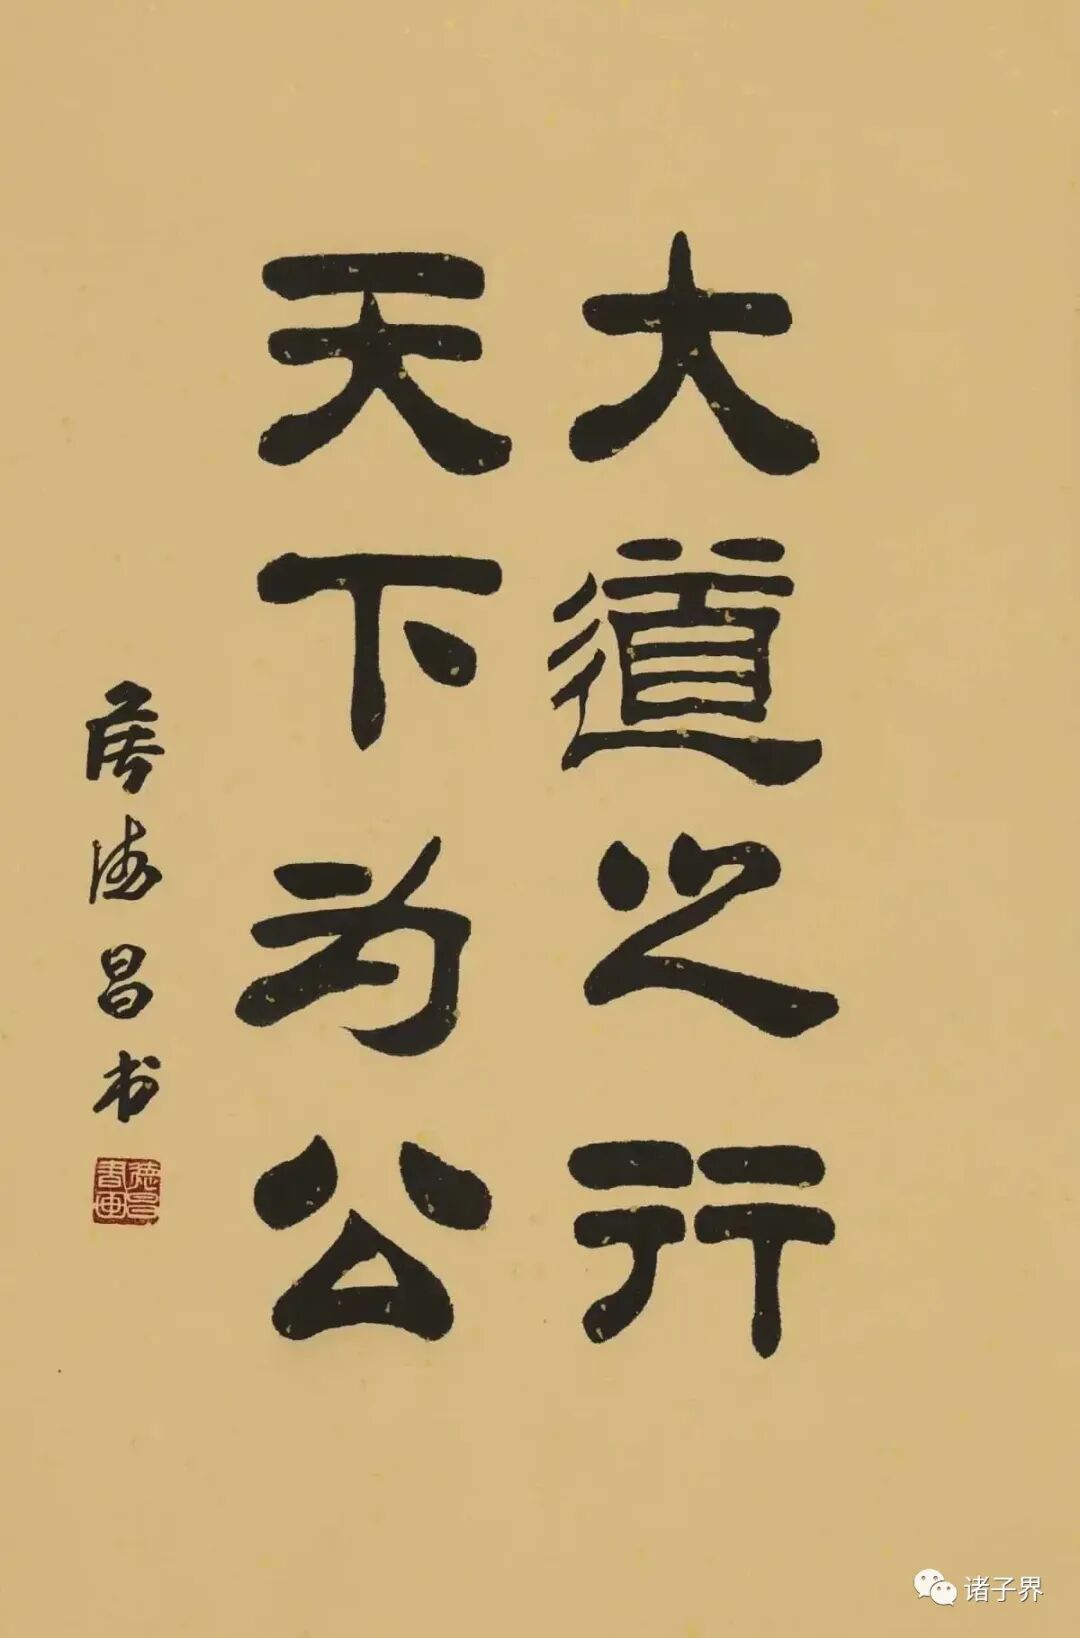 大道之行
天下为公
蒋德昌书
德昌书画
诸子界